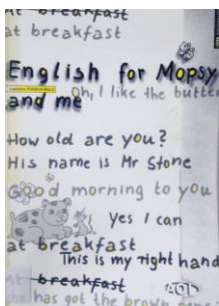 At breakfast
at breakfast
English for Mopsy
and me
Oh, I like the butter
How old are you?
His name is Mr Stone
Good morning to you
yes I can
at breakfast
This is my right hand
At breakfast
has got the brown